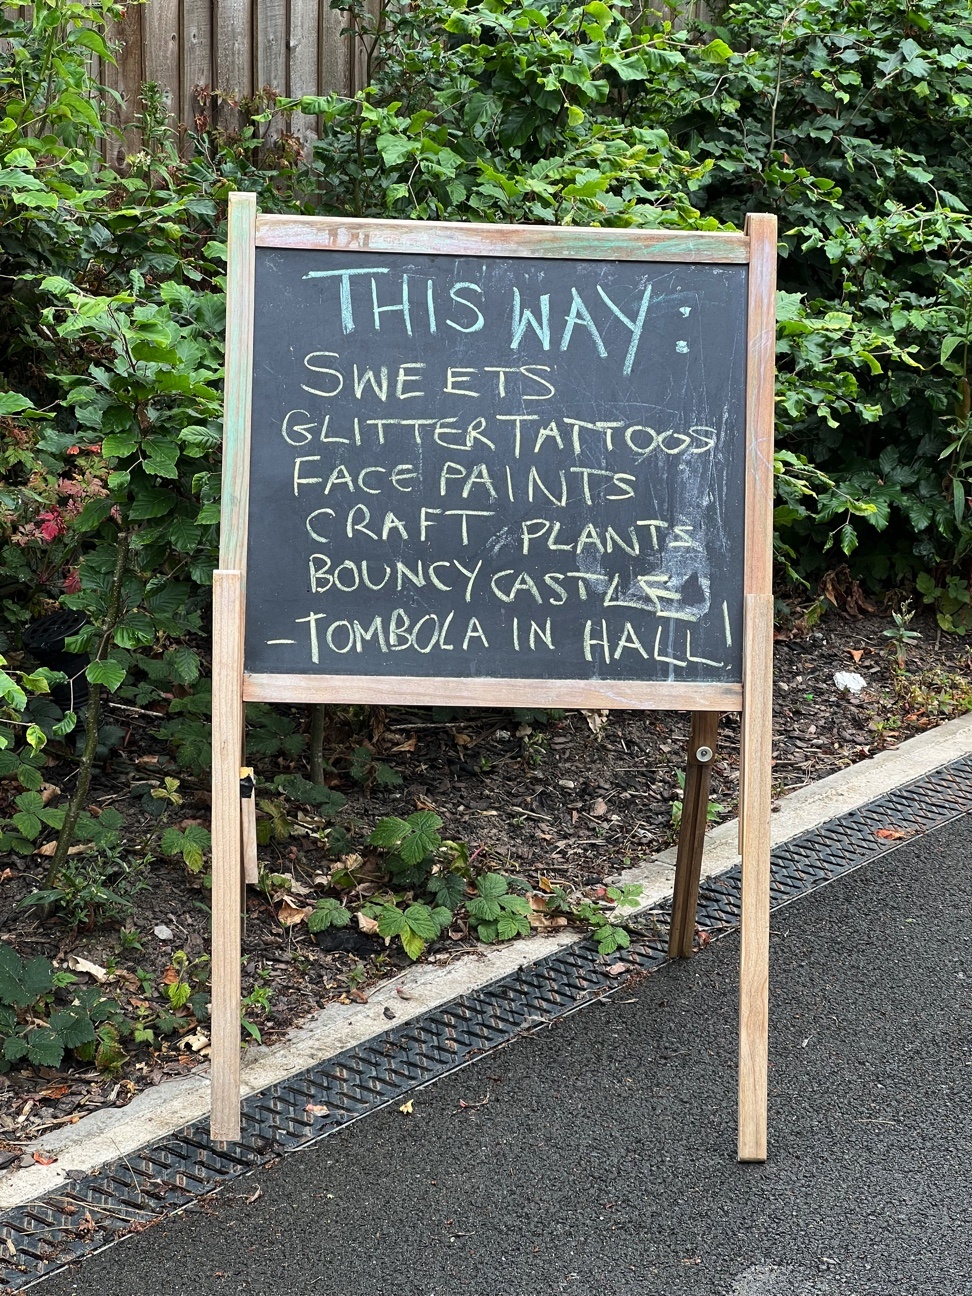 THIS WAY:
SWEETS
GLITTER TATTOOS
FACE PAINTS
CRAFT PLANTS
BOUNCY CASTLE
-TOMBOLA IN HALL!